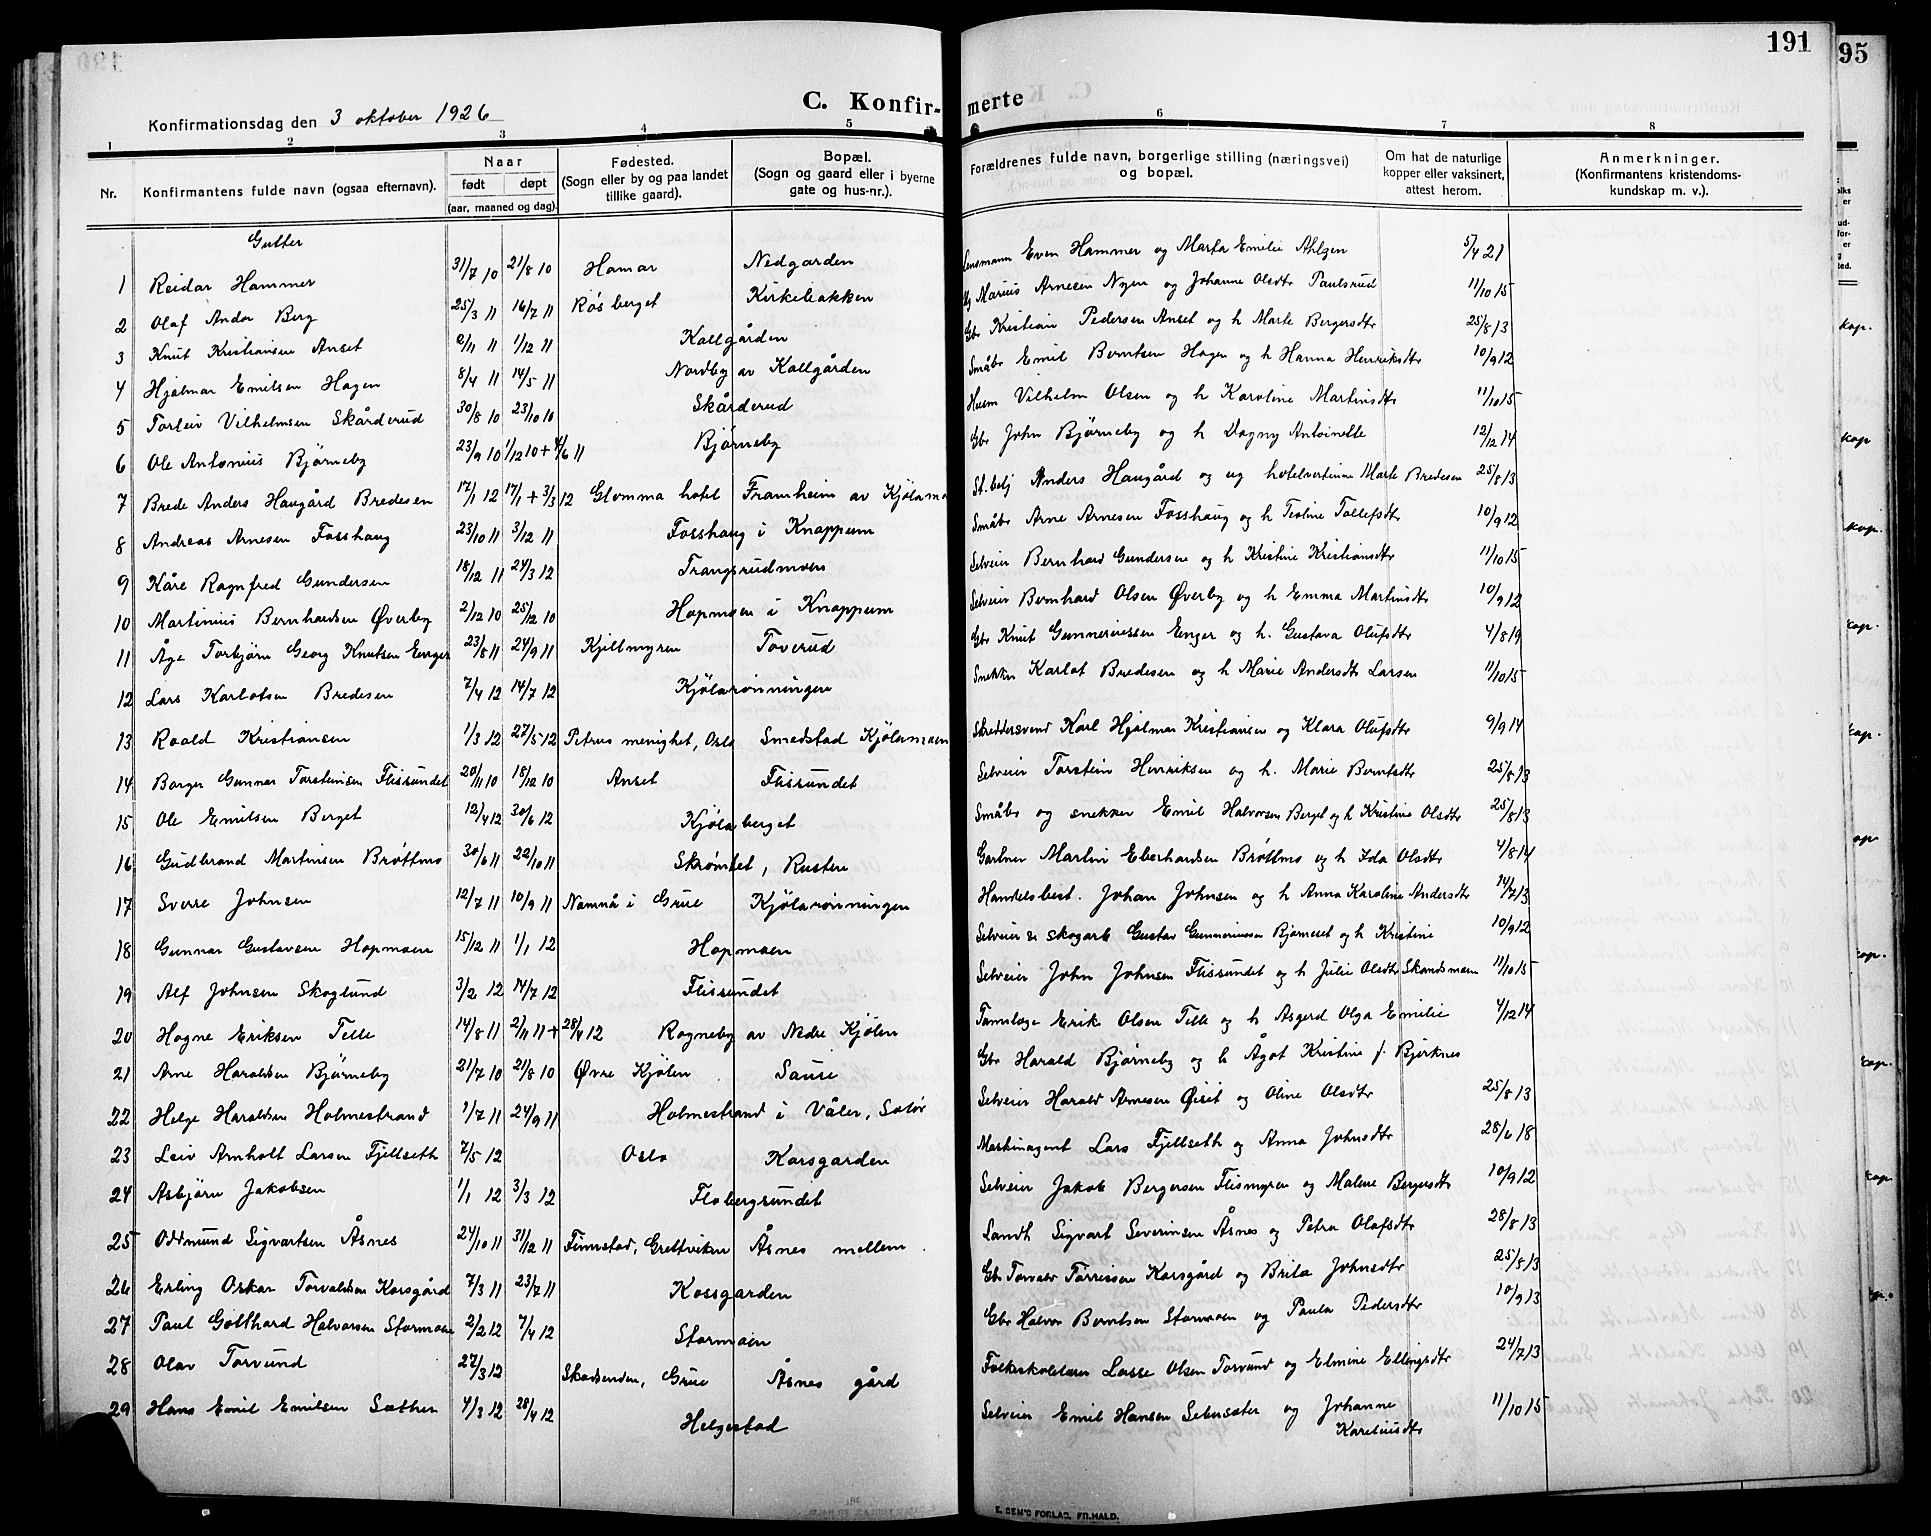 191
95
C. Konfirmerte
Konfirmationsdag den 3 oktober 1926
1 2 3 4 5 6 7 8
Nr. Konfirmantens fulde navn (ogsaa efternavn). Naar født døpt (aar, maaned og dag). Fødested. (Sogn eller by og paa landet tillike gaard). Bopæl. (Sogn og gaard eller i byerne gate og hus-nr.). Forældrenes fulde navn, borgerlige stilling (næringsvei) og bopæl. Om hat de naturlige kopper eller vaksinert, attest herom. Anmerkninger. (Konfirmantens kristendomskundskap m. v.).
Gutter
1 Reidar Hammer 31/7 10 21/8 10 Hamar Nedgarden Lensmann Even Hammer og Marta Emilie Ahlzen 5/4 21
2 Olaf Andor Berg 25/3 11 16/7 11 Røsberget Kirkebakken Marius Arnesen Nyen og Johanne Olsdtr Paulsrud 11/10 15
3 Knut Kristiansen Anset 1/12 11 Kallgården Gbr Kristian Pedersen Anset og h Marte Bergersdtr 25/8 13
4 Hjalmar Emilsen Hagen 8/4 11 14/5 11 Nordby av Kallgården Småbr Emil Berntsen Hagen og h Hanna Henriksdtr 10/9 12
5 Torleiv Vilhelmsen Skårderud 30/8 10 23/10 10 Skårderud Husm Vilhelm Olsen og h Karoline Martinsdtr 11/10 15
6 Ole Antonius Bjørneby 23/9 10 1/12 10 + 4/6 11 Bjørneby Gbr John Bjørneby og h Dagny Antoinette 12/12 14
7 Brede Anders Haugård Bredesen 17/1 12 17/1 + 3/3 12 Glomma hotel Framheim av Kjølarmo St.betj Anders Haugård og ug hotelvertinne Marte Bredesen 25/8 13
8 Andreas Arnesen Fosshaug 23/10 11 3/12 11 Fosshaug i Knappum Småbr Arne Arnesen Fosshaug og h Teoline Tollefsdtr 10/9 12
9 Kåre Ragnfred Gundersen 18/12 11 24/3 12 Trangsrudmoen Selveier Bernhard Gundersen og h Kristine Kristiansdtr 11/10 15
10 Martinius Bernhardsen Øverby 2/12 10 25/12 10 Hopmoen i Knappum Selveier Bernhard Olsen Øverby og h Emma Martinsdtr 10/9 12
11 Åge Torbjørn Georg Knutsen Enger 23/8 11 24/9 11 Kjellmyren Toverud Gbr Knut Gunneriussen Enger og h. Gustava Olufsdtr 4/8 19
12 Lars Karlotsen Bredesen 7/4 12 14/7 12 Kjølarønningen Snekker Karlot Bredesen og h Marie Andersdtr Larsen 11/10 15
13 Roald Kristiansen 1/3 12 27/5 12 Petrus menighet, Oslo Smedstad Kjølarmoen Skreddersvend Karl Hjalmar Kristiansen og Klara Olufsdtr 9/9 14
14 Borger Gunnar Torsteinsen Flissundet 20/11 10 18/12 10 Anset Flisundet Selveier Torstein Henriksen og h. Marie Berntsdtr 25/8 13
15 Ole Emilsen Berget 12/4 12 30/6 12 Kjølaberget Småbr og snekker Emil Halvorsen Berget og h Kristine Olsdtr 25/8 13
16 Gudbrand Martinsen Brøttmo 30/6 11 22/10 11 Skrømbet, Rusten Gartner Martin Eberhardsen Brøttmo og h Ida Olsdtr 4/8 14
17 Sverre Johnsen 12/7 11 10/9 11 Namnå i Grue Kjølarønningen Handelsbest. Johan Johnsen og h Anna Karoline Andersdtr 14/7 13
18 Gunnar Gustavsen Hopmoen 15/12 11 1/1 12 Hopmoen Selveier & skogarb Gustav Gunneriussen Bjørneset og h Kristine 10/9 12
19 Alf Johnsen Skoglund 3/2 12 14/7 12 Flissundet Selveier John Johnsen Flissundet og h Julie Olsdtr Skandsmoen 11/10 15
20 Hogne Eriksen Telle 14/8 11 2/11 11 + 28/4 12 Rogneby av Nedre Kjølen Tannlæge Erik Olsen Telle og h Asgerd Olga Emilie 4/12 14
21 Arne Haraldsen Bjørneby 21/7 10 21/8 10 Øvre Kjølen Sauri Gbr Harald Bjørneby og h Ågot Kristine f. Bjerknes
22 Helge Haraldsen Holmestrand 1/7 11 24/9 11 Holmestrand i Våler, Solør Selveier Harald Arnesen Øiset og Oline Olsdtr 25/8 13
23 Leiv Arnholt Larsen Fjellseth 7/5 12 Oslo Korsgarden Maskinagent Lars Fjellseth og Anna Johnsdtr 28/6 18
24 Asbjørn Jakobsen 1/1 12 3/3 12 Flobergsundet Selveier Jakob Bergersen Flismyren og Malene Bergersdtr 10/9 12
25 Oddmund Sigvartsen Åsnes 24/10 11 31/12 11 Finnstad, Grettviken Åsnes mellem Landh Sigvart Severinsen Åsnes og Petra Olafsdtr 28/8 13
26 Erling Oskar Torvaldsen Korsgård 7/3 11 23/7 11 Kossgarden Gbr Torvald Torressen Korsgård og Brita Johnsdtr 25/8 13
27 Paul Gotthard Halvorsen Stormoen 2/2 12 7/4 12 Stormoen Gbr Halvor Berntsen Stormoen og Paula Pedersdtr 10/9 13
28 Olav Torvund 27/3 12 Skadsenden, Grue Åsnes gård Folkeskolelærer Lasse Olsen Torvund og Elmine Ellingsdtr 24/7 13
29 Hans Emil Emilsen Sæther 4/3 12 28/4 12 Helgestad Selveier Emil Hansen Sebersæter og Johanne Karelinisdtr 11/10 15
kop.
kop
kop.
kop.
kop.
op.
kop.
kop.
kop.
E. SEM'S FORLAG, FR.HALD.